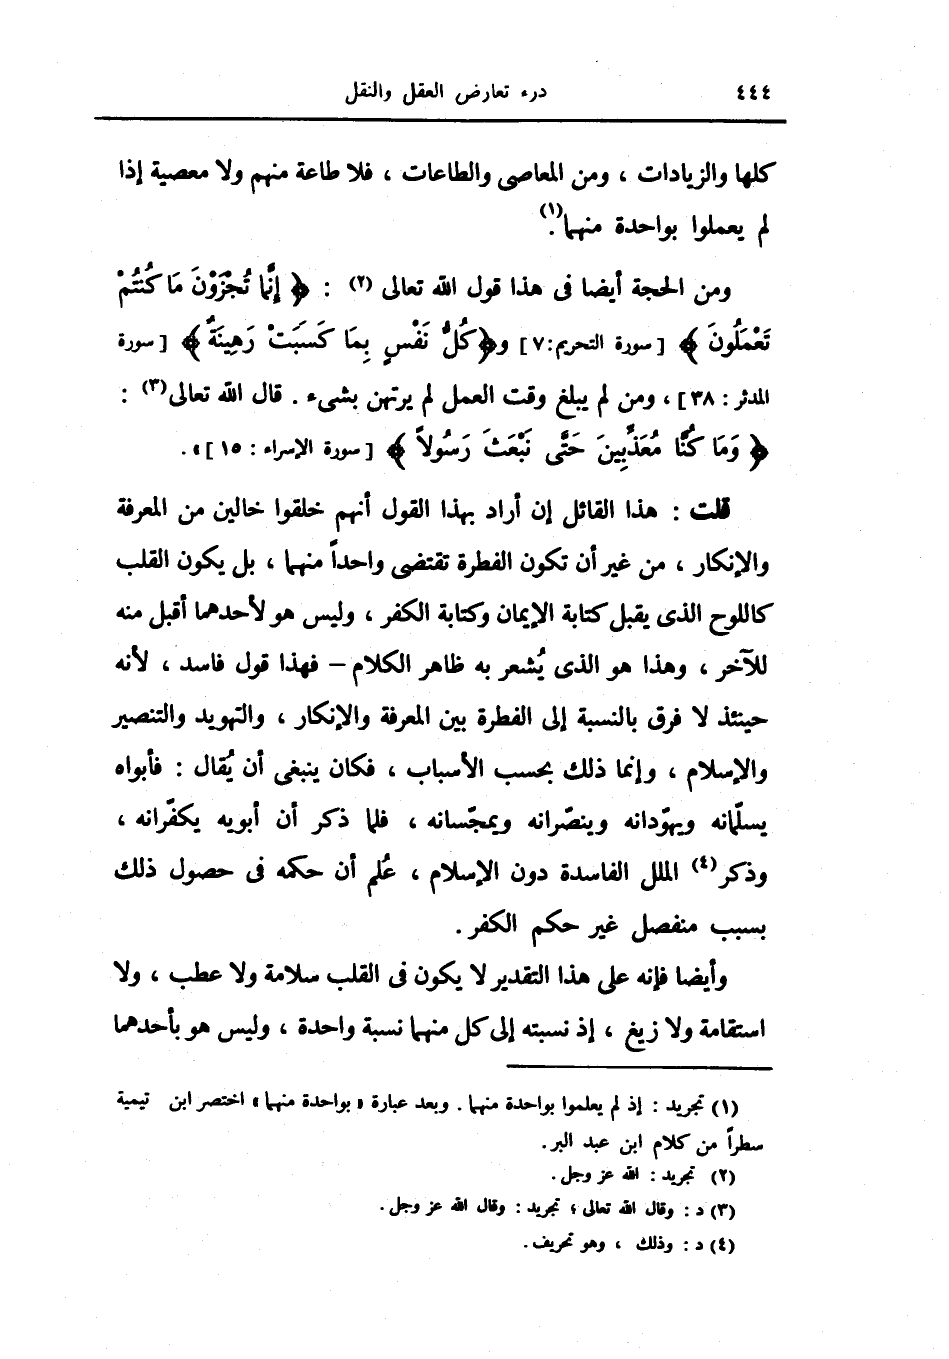 ٤٤٤ درء تعارض العقل والنقل
كلها والزيادات ، ومن المعاصى والطاعات ، فلا طاعة منهم ولا معصية إذا
لم يعملوا بواحدة منهما(١).
ومن الحجة أيضا فى هذا قول الله تعالى (٢) : ﴿ إِنَّمَا تُجْزَوْنَ مَا كُنتُمْ
تَعْمَلُونَ ﴾ [ سورة التحريم:٧ ] و﴿كُلُّ نَفْسٍ بِمَا كَسَبَتْ رَهِينَةٌ﴾ [ سورة
المدثر : ٣٨ ] ، ومن لم يبلغ وقت العمل لم يرتهن بشىء . قال الله تعالى(٣) :
﴿ وَمَا كُنَّا مُعَذِّبِينَ حَتَّى نَبْعَثَ رَسُولاً ﴾ [ سورة الإسراء : ١٥ ] » .
قلت : هذا القائل إن أراد بهذا القول أنهم خلقوا خالين من المعرفة
والإنكار ، من غير أن تكون الفطرة تقتضى واحداً منهما ، بل يكون القلب
كاللوح الذى يقبل كتابة الإيمان وكتابة الكفر ، وليس هو لأحدهما أقبل منه
للآخر ، وهذا هو الذى يُشعر به ظاهر الكلام – فهذا قول فاسد ، لأنه
حينئذ لا فرق بالنسبة إلى الفطرة بين المعرفة والإنكار ، والتهويد والتنصير
والإسلام ، وإنما ذلك بحسب الأسباب ، فكان ينبغى أن يُقال : فأبواه
يسلّمانه ويهوّدانه وينصّرانه ويمجّسانه ، فلما ذكر أن أبويه يكفّرانه ،
وذكر(٤) الملل الفاسدة دون الإسلام ، عُلم أن حكمه فى حصول ذلك
بسبب منفصل غير حكم الكفر .
وأيضا فإنه على هذا التقدير لا يكون فى القلب سلامة ولا عطب ، ولا
استقامة ولا زيغ ، إذ نسبته إلى كل منهما نسبة واحدة ، وليس هو بأحدهما
(١) تجريد : إذ لم يعلموا بواحدة منهما . وبعد عبارة « بواحدة منهما » اختصر ابن تيمية
سطراً من كلام ابن عبد البر .
(٢) تجريد : الله عز وجل .
(٣) د : وقال الله تعالى ؛ تجريد : وقال الله عز وجل .
(٤) د : وذلك ، وهو تحريف .